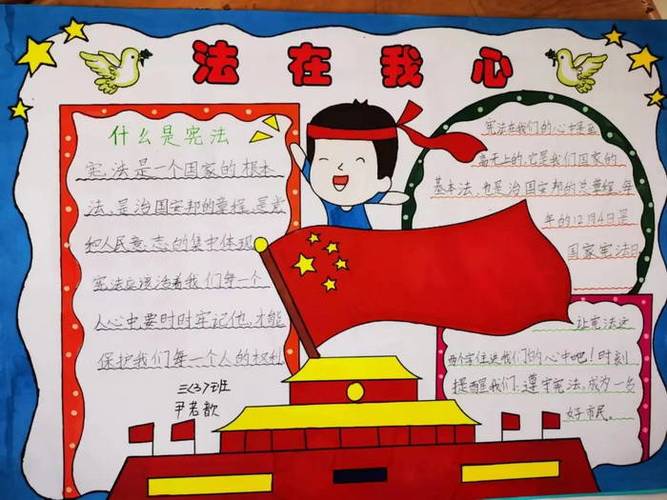 法在我心
什么是宪法
宪法是一个国家的根本
法,是治国安邦的章程,是党
和人民意志的集中体现
宪法应该活着我们每一个
人心中要时时牢记他,才能
保护我们每一个人的权利
三(3)班
尹若歆
宪法在我们的心中是至
高无上的,它是我们国家的
基本法,也是治国安邦的总章程,每
年的12月4日是
国家宪法日
让宪法这
两个字住进我们的心中吧!时刻
提醒我们:遵守宪法,成为一名
好市民。